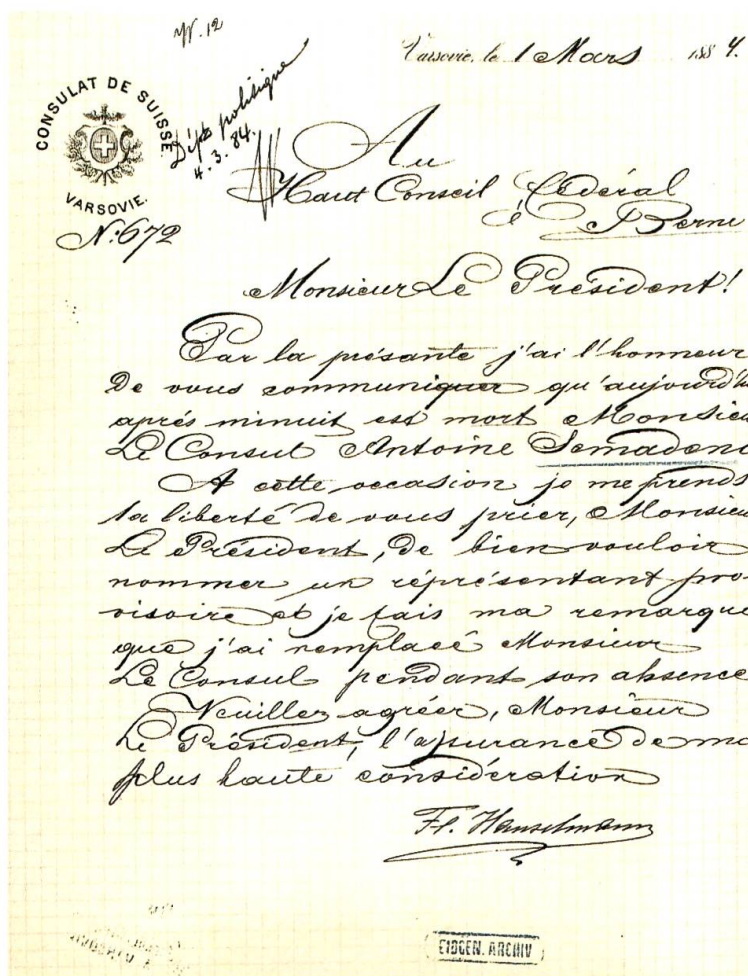 N. 12
Varsovie, le 1 Mars 1884.
CONSULAT DE SUISSE.
VARSOVIE.
Dépt politique
4.3.84.
Au
Haut Conseil fédéral
à Berne
N:672
Monsieur Le Président!
Par la présante j'ai l'honneur
De vous communiquer qu'aujourd'hu
aprés minuit est mort Monsieu
Le Consul Antoine Semadeni
A cette occasion je me prends
la liberté de vous prier, Monsieu
Le Président, de bien vouloir
nommer un réprésentant pro-
visoire et je fais ma remarque
que j'ai remplacé Monsieur
Le Consul pendant son absence
Veuillez agréer, Monsieur
Le Président, l'assurance de ma
plus haute considération
Fl. Hanselmann
EIDGEN. ARCHIV